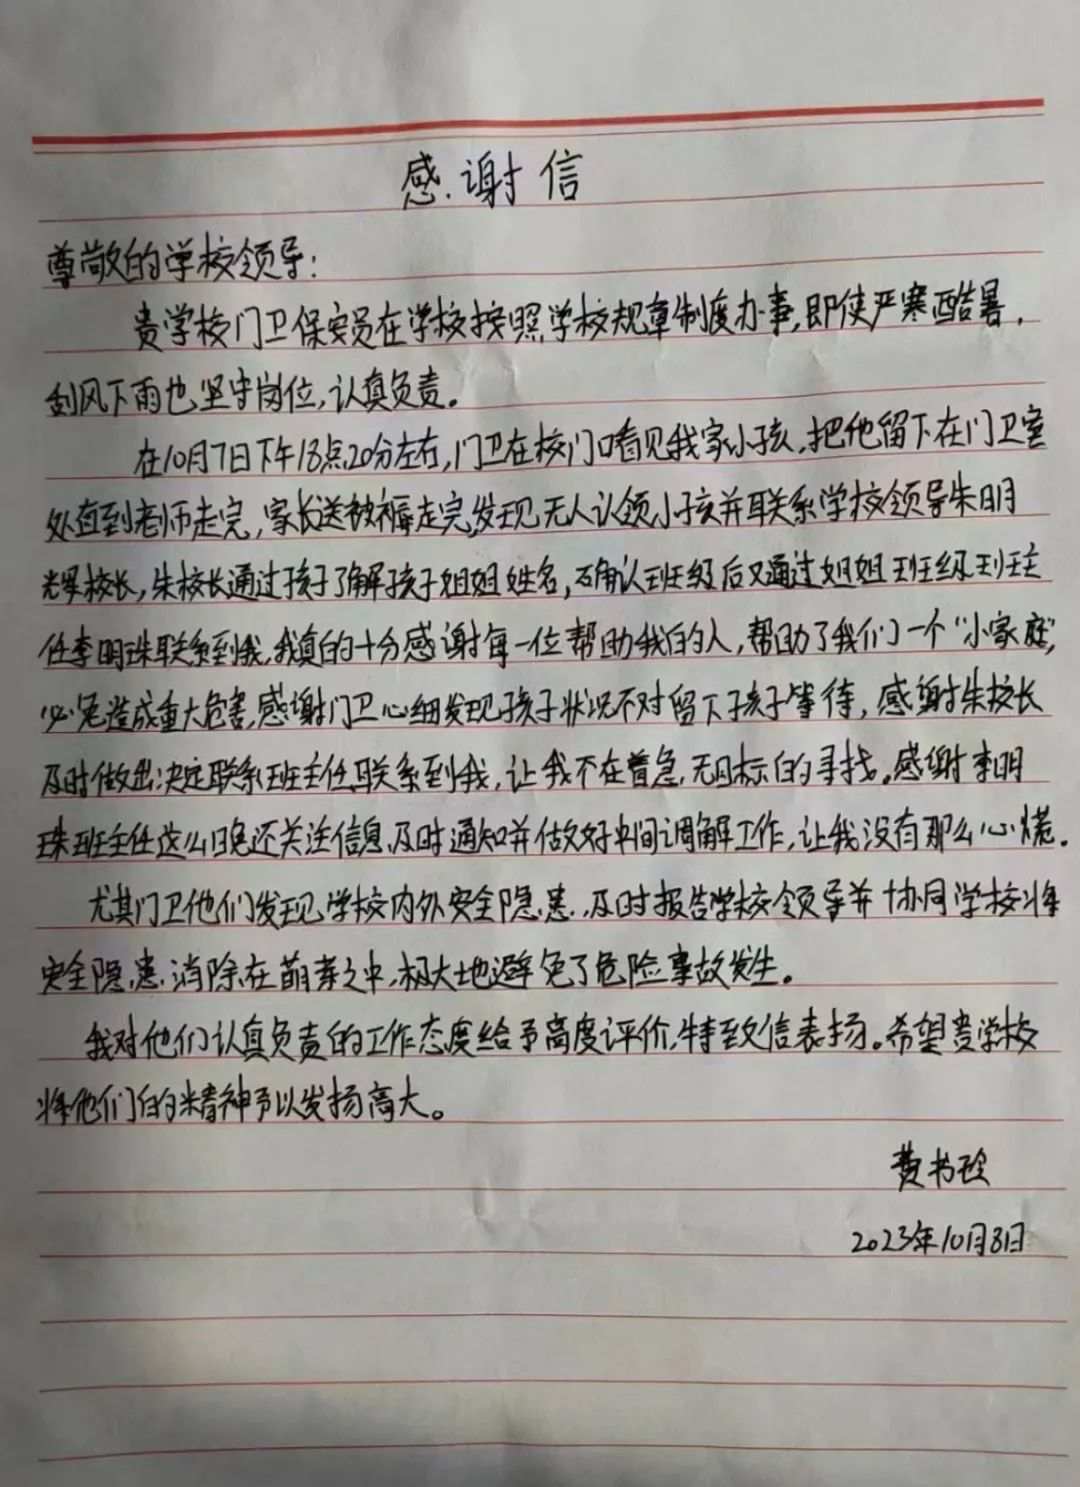 感谢信
尊敬的学校领导:
贵学校门卫保安员在学校按照学校规章制度办事,即使严寒酷暑,
刮风下雨也坚守岗位,认真负责。
在10月7日下午18点20分左右,门卫在校门口看见我家小孩,把他留下在门卫室
处直到老师走完,家长送被褥走完,发现无人认领小孩并联系学校领导朱明
辉校长,朱校长通过孩子了解孩子姐姐姓名,确认班级后又通过姐姐班级班主
任李明珠联系到我,我真的十分感谢每一位帮助我的人,帮助了我们一个"小家庭",
免造成重大危害,感谢门卫心细发现孩子状况不对留下孩子等待,感谢朱校长
及时做出决定联系班主任联系到我,让我不在着急,无目标的寻找。感谢李明
珠班主任这么晚还关注信息,及时通知并做好中间调解工作,让我没有那么心慌。
尤其门卫他们发现学校内外安全隐患,及时报告学校领导并协同学校将
安全隐患消除在萌芽之中,极大地避免了危险事故发生。
我对他们认真负责的工作态度给予高度评价,特致信表扬。希望贵学校
将他们的精神予以发扬高大。
费书玲
2023年10月8日